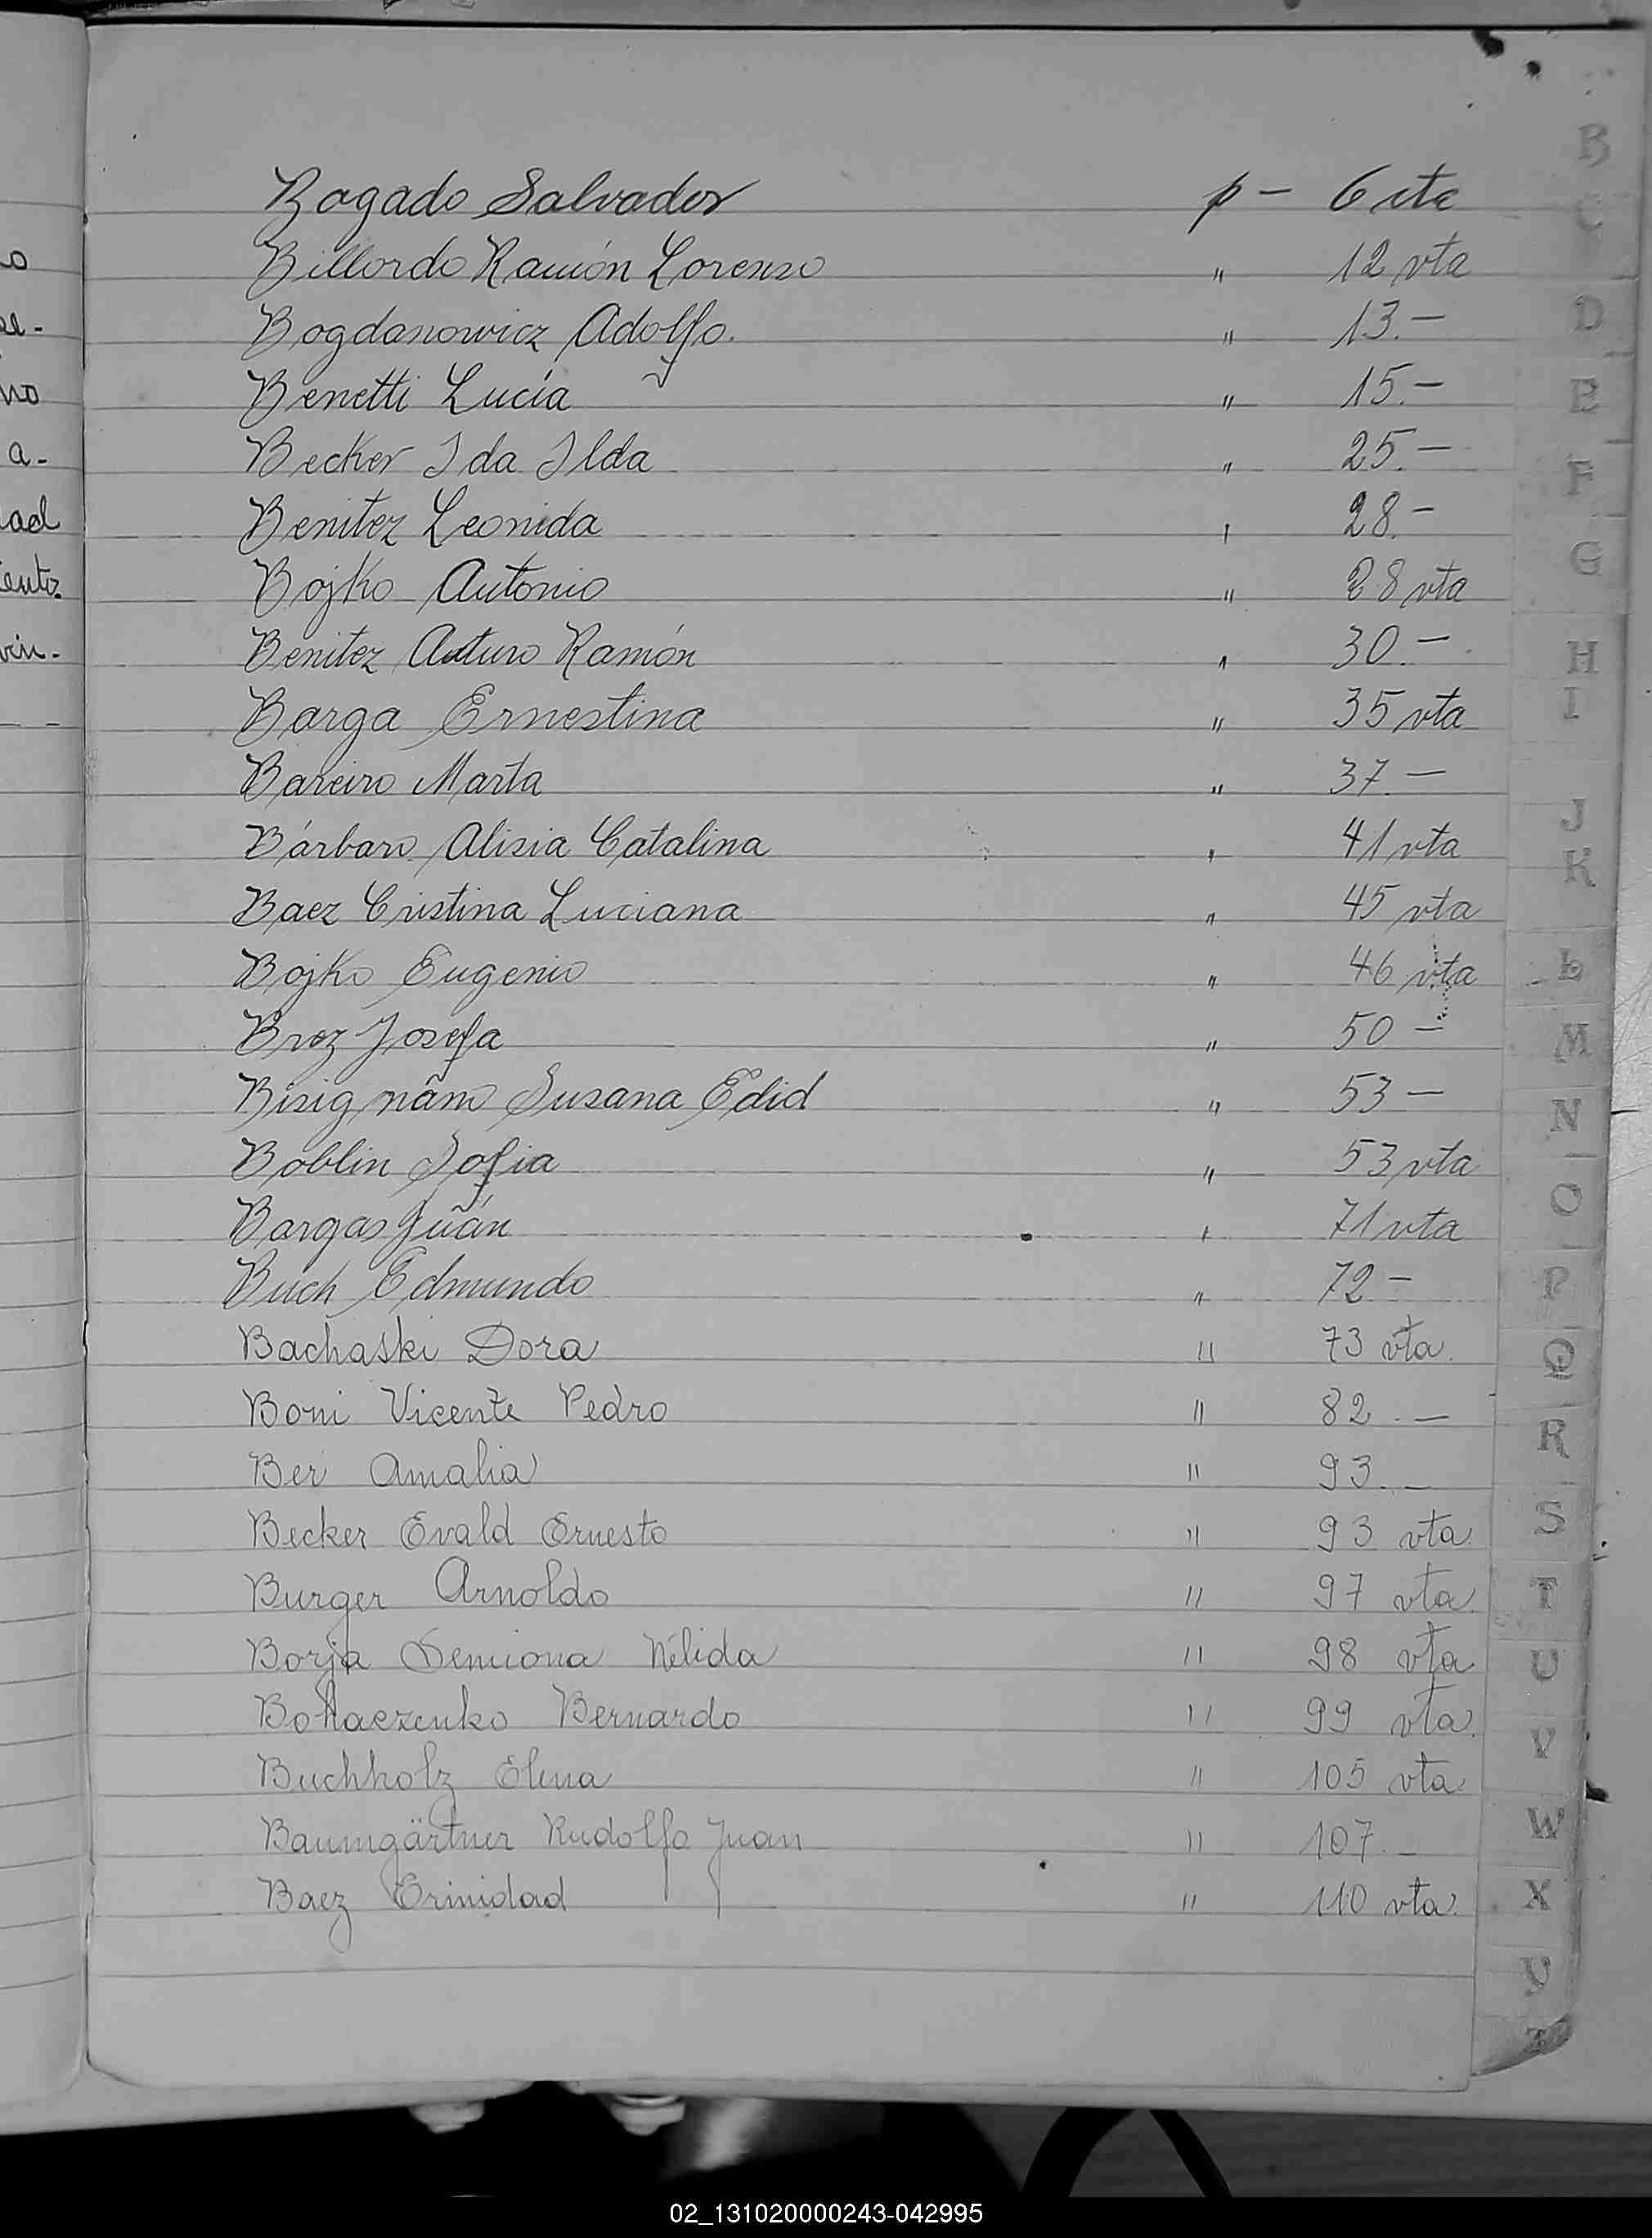 Bogado Salvador p - 6 vta
Billordo Ramón Lorenzo " 12 vta
Bogdanowicz Adolfo. " 13.-
Benetti Lucía " 15.-
Becker Ida Ilda " 25.-
Benitez Leonida " 28.-
Bojko Antonio " 28 vta
Benitez Arturo Ramón " 30.-
Barga Ernestina " 35 vta
Bareiro Marta " 37.-
Bárbaro Alisia Catalina " 41 vta
Baez Cristina Luciana " 45 vta
Bojko Eugenio " 46 vta
Broz Josefa " 50 -
Susana Edid " 53 -
Boblin Sofia " 53 vta
Bargas Juán " 71 vta
Buch Edmundo " 72 -
Bachaski Dora " 73 vta.
Boni Vicente Pedro " 82.-
Ber Amalia " 93.-
Becker Evald Ernesto " 93 vta.
Burger Arnoldo " 97 vta.
Borja Nélida " 98 vta
Bohaezenko Bernardo " 99 vta.
Buchholz Elena " 105 vta.
Baumgärtner Rudolfo Juan " 107.-
Baez Trinidad " 110 vta.
B
C
D
E
F
G
H
I
J
K
L
M
N
O
P
Q
R
S
T
U
V
W
X
Y
Z
02_131020000243-042995